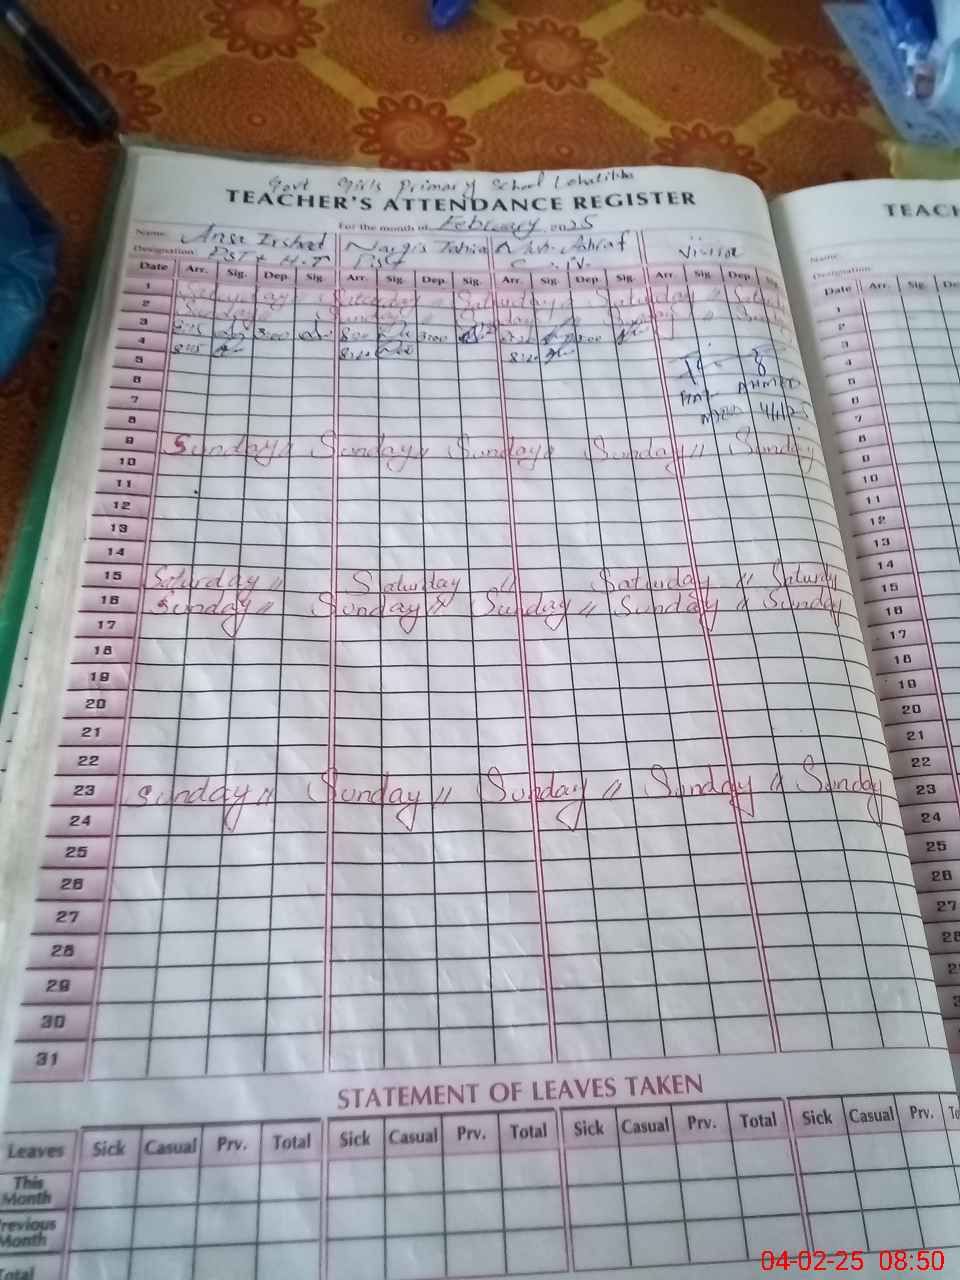 Govt Girls Primary School
TEACHER'S ATTENDANCE REGISTER
For the month of February 2025
Name: Irshad Nargis Ashraf
Designation PST + H.T PST
Date Arr. Sig. Dep. Sig. Arr. Sig. Dep. Sig. Arr. Sig. Dep. Sig. Arr Sig Dep Sig.
1 Saturday " Saturday " Saturday " Saturday "
2 Sunday Sunday Sunday
3 3:00 8:00 3:00
4 8:15
5
6
7
8
9 Sunday " Sunday " Sunday " Sunday " Sunday
10
11
12
13
14
15 Saturday " Saturday " Saturday " Saturday
16 Sunday " Sunday " Sunday " Sunday " Sunday
17
18
19
20
21
22
23 Sunday " Sunday " Sunday " Sunday " Sunday
24
25
26
27
28
29
30
31
AHMED
STATEMENT OF LEAVES TAKEN
Leaves Sick Casual Prv. Total Sick Casual Prv. Total Sick Casual Prv. Total Sick Casual Prv.
This Month
Previous Month
Total
TEACH
Name:
Designation:
Date Arr. Sig. De
1
2
3
4
5
6
7
8
9
10
11
12
13
14
15
16
17
18
19
20
21
22
23
24
25
26
27
04-02-25 08:50